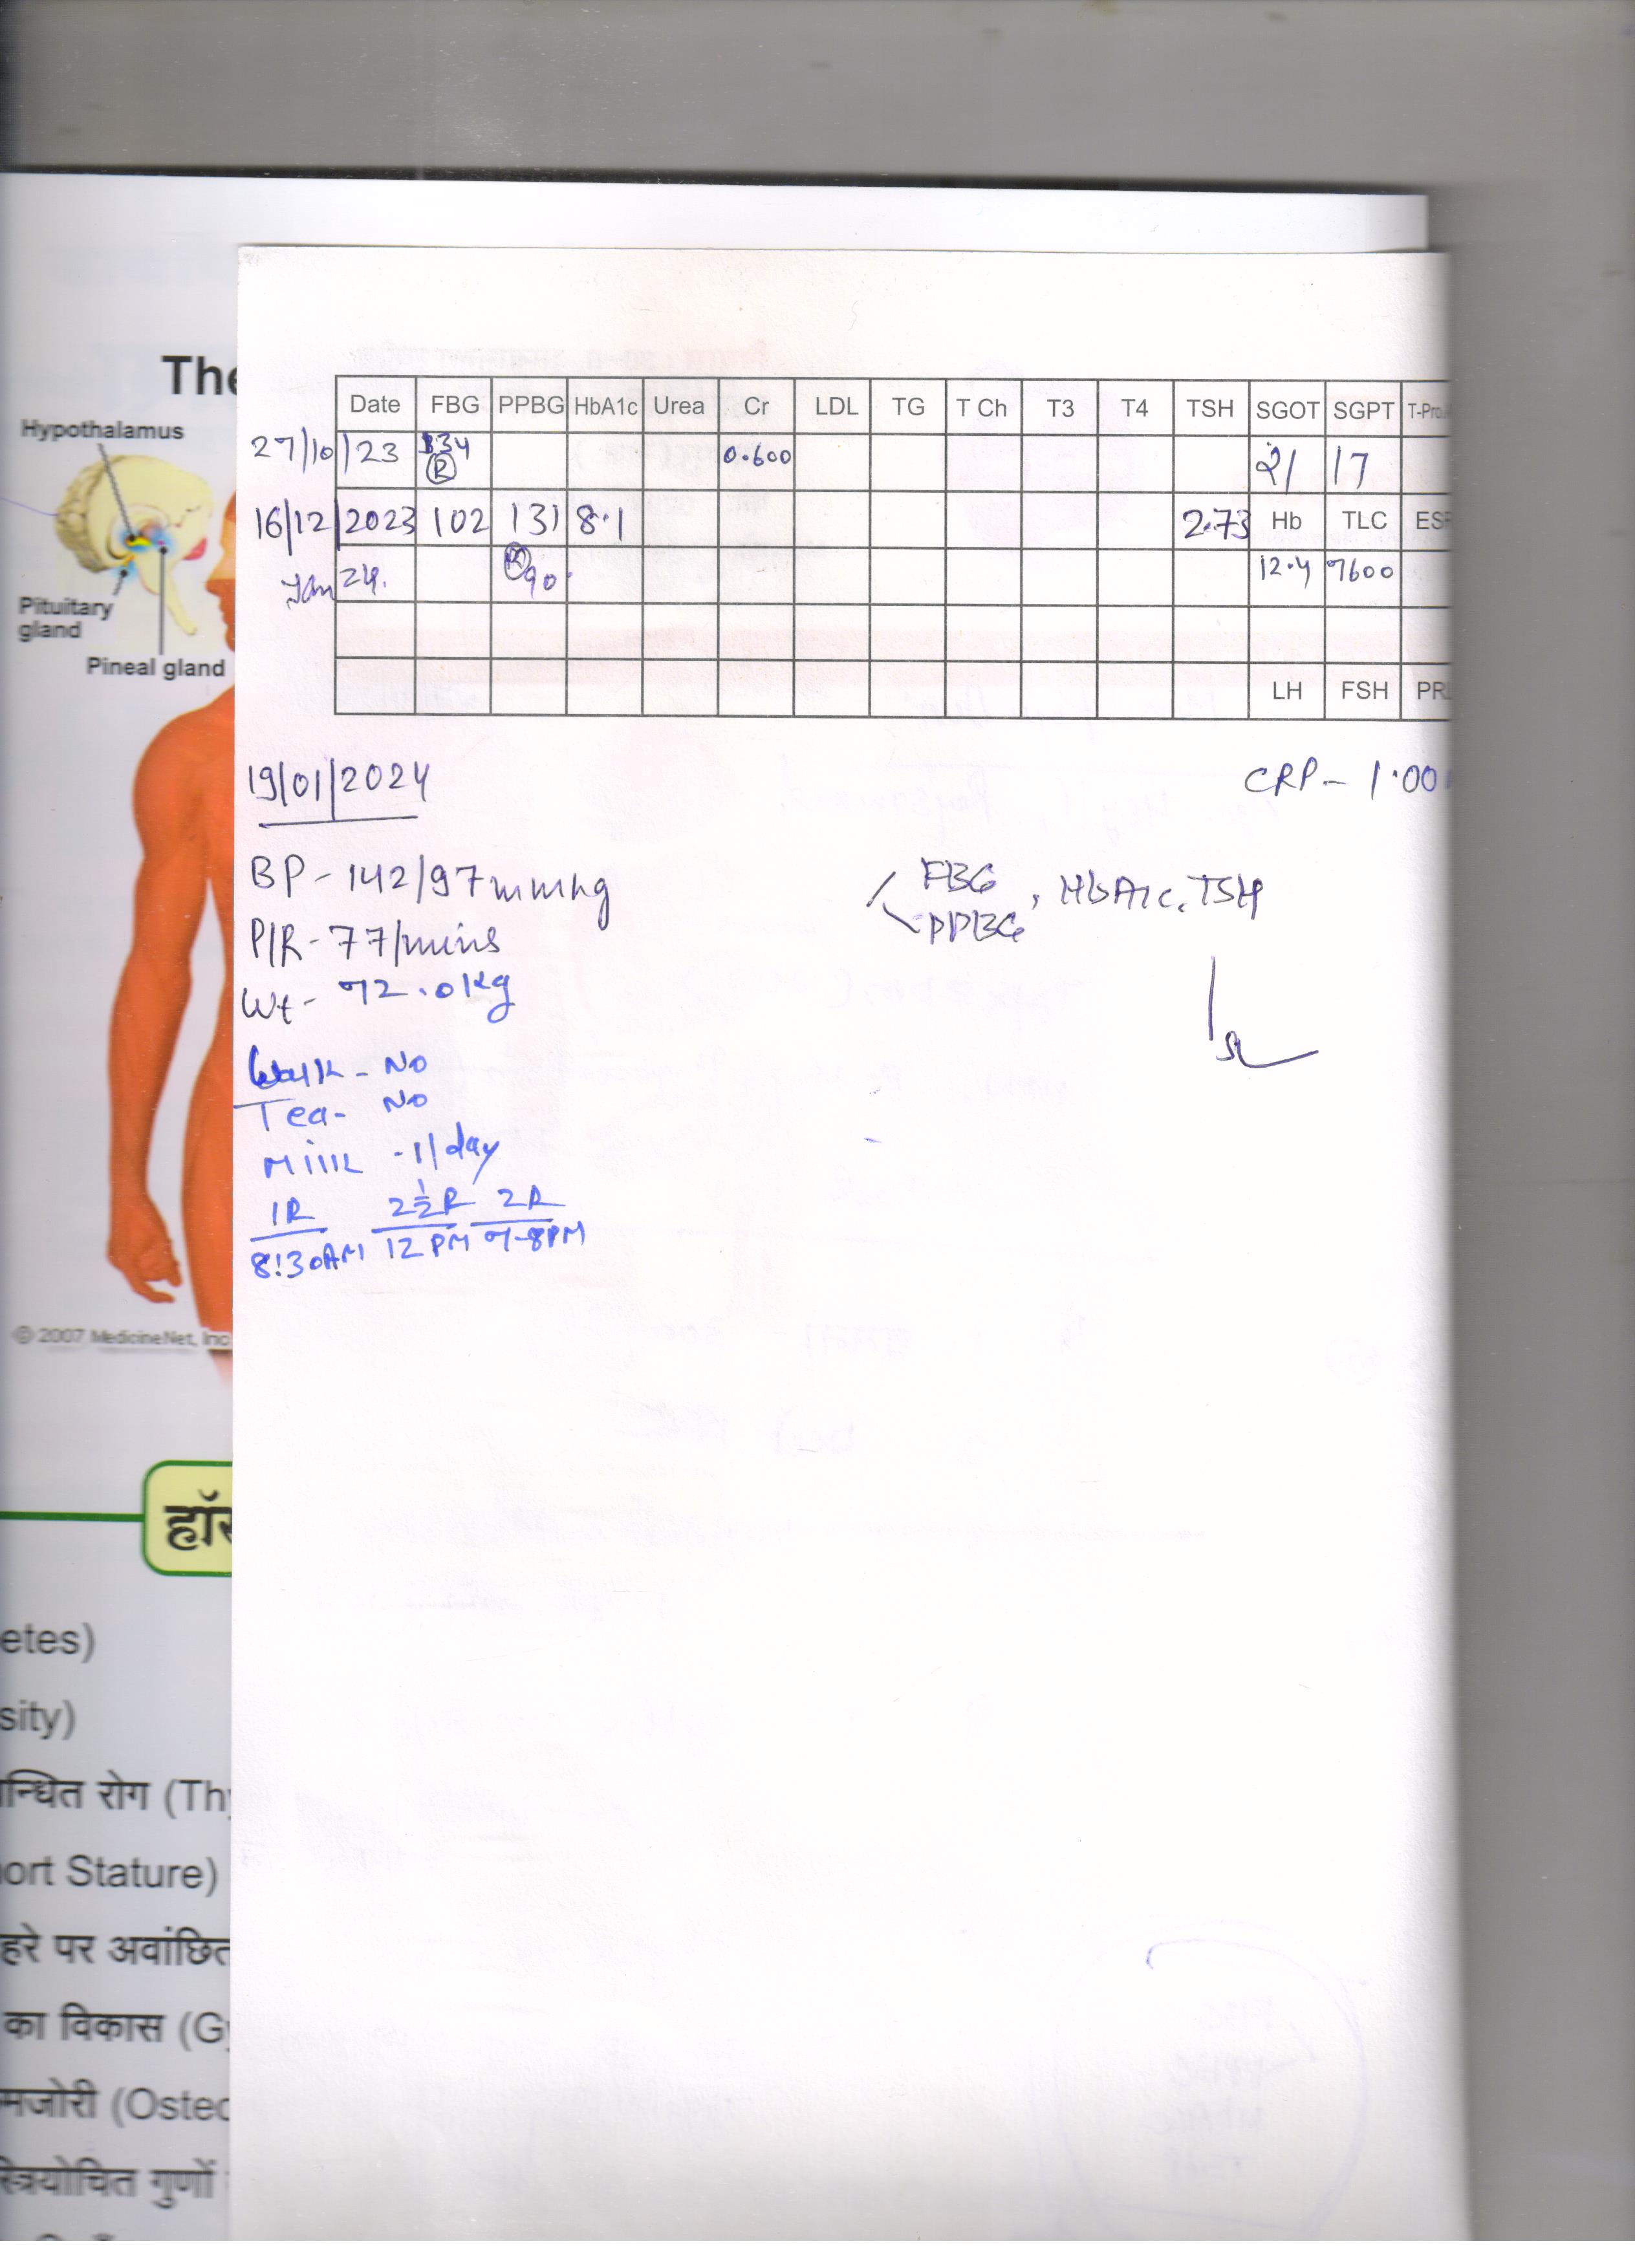 The
Hypothalamus
Pituitary
gland
Pineal gland
© 2007 MedicineNet, Inc
हॉर
etes)
sity)
न्धित रोग (Thy
ort Stature)
हरे पर अवांछित
का विकास (Gy
मजोरी (Osteo
स्त्रियोचित गुणों
Date FBG PPBG HbA1c Urea Cr LDL TG T Ch T3 T4 TSH SGOT SGPT T-Pro
27/10/23 334 R 0.600 21 17
16/12/2023 102 131 8.1 2.73 Hb TLC ESR
Jan 24. R 90. 12.4 7600
LH FSH PRL
19/01/2024
CRP - 1.00
BP - 142/97 mmhg
P/R - 77/mins
Wt - 72.0kg
FBG
PPBG , HbA1c, TSH
Walk - No
Tea - No
Milk - 1/day
1R 2½R 2R
8:30AM 12 PM 7-8PM